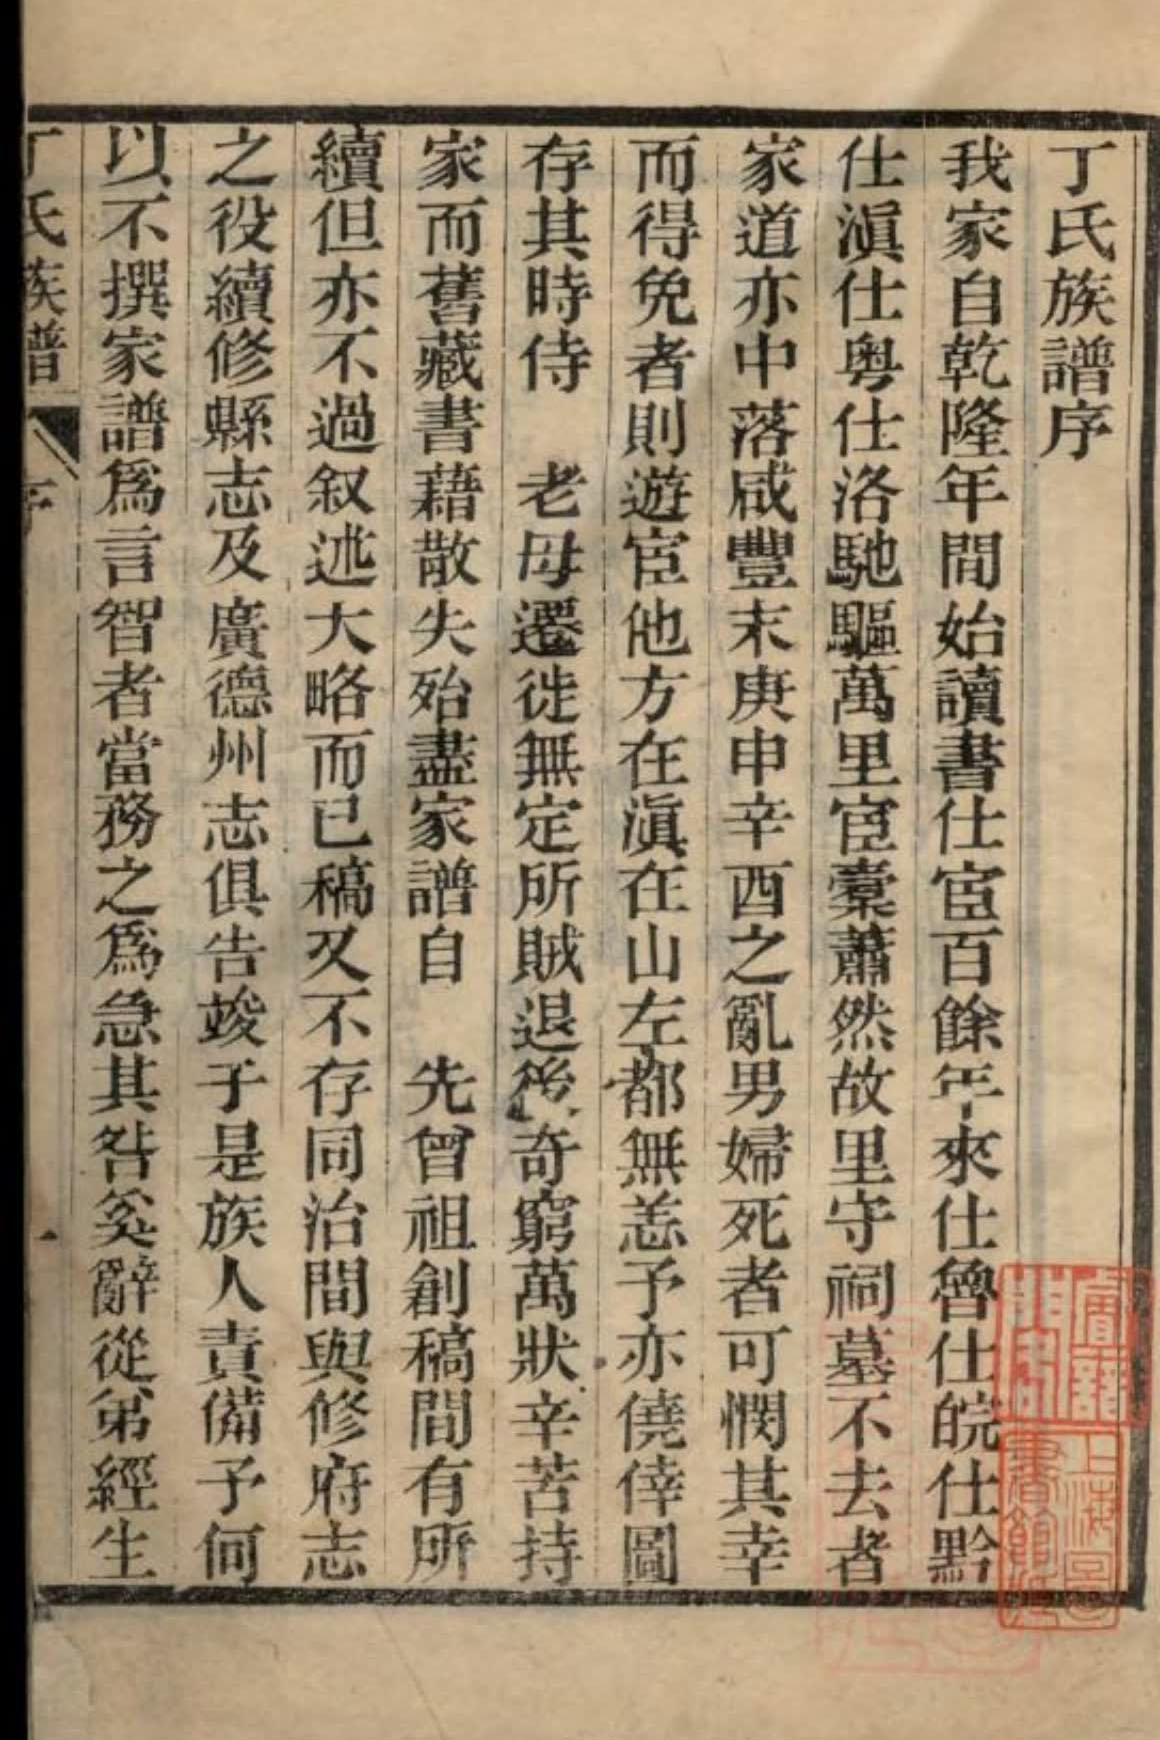 丁氏族譜序
我家自乾隆年間始讀書仕宦百餘年來仕魯仕皖仕黔
仕滇仕粵仕洛馳驅萬里宦橐蕭然故里守祠墓不去者
家道亦中落咸豐末庚申辛酉之亂男婦死者可憫其幸
而得免者則遊宦他方在滇在山左都無恙予亦僥倖圖
存其時侍　老母遷徙無定所賊退後奇窮萬狀辛苦持
家而舊藏書藉散失殆盡家譜自　先曾祖創稿間有所
續但亦不過叙述大略而已稿又不存同治間與修府志
之役續修縣志及廣德州志俱告竣于是族人責備予何
以不撰家譜爲言智者當務之爲急其咎奚辭從弟經生
丁氏族譜
序
一
上海圖書館藏